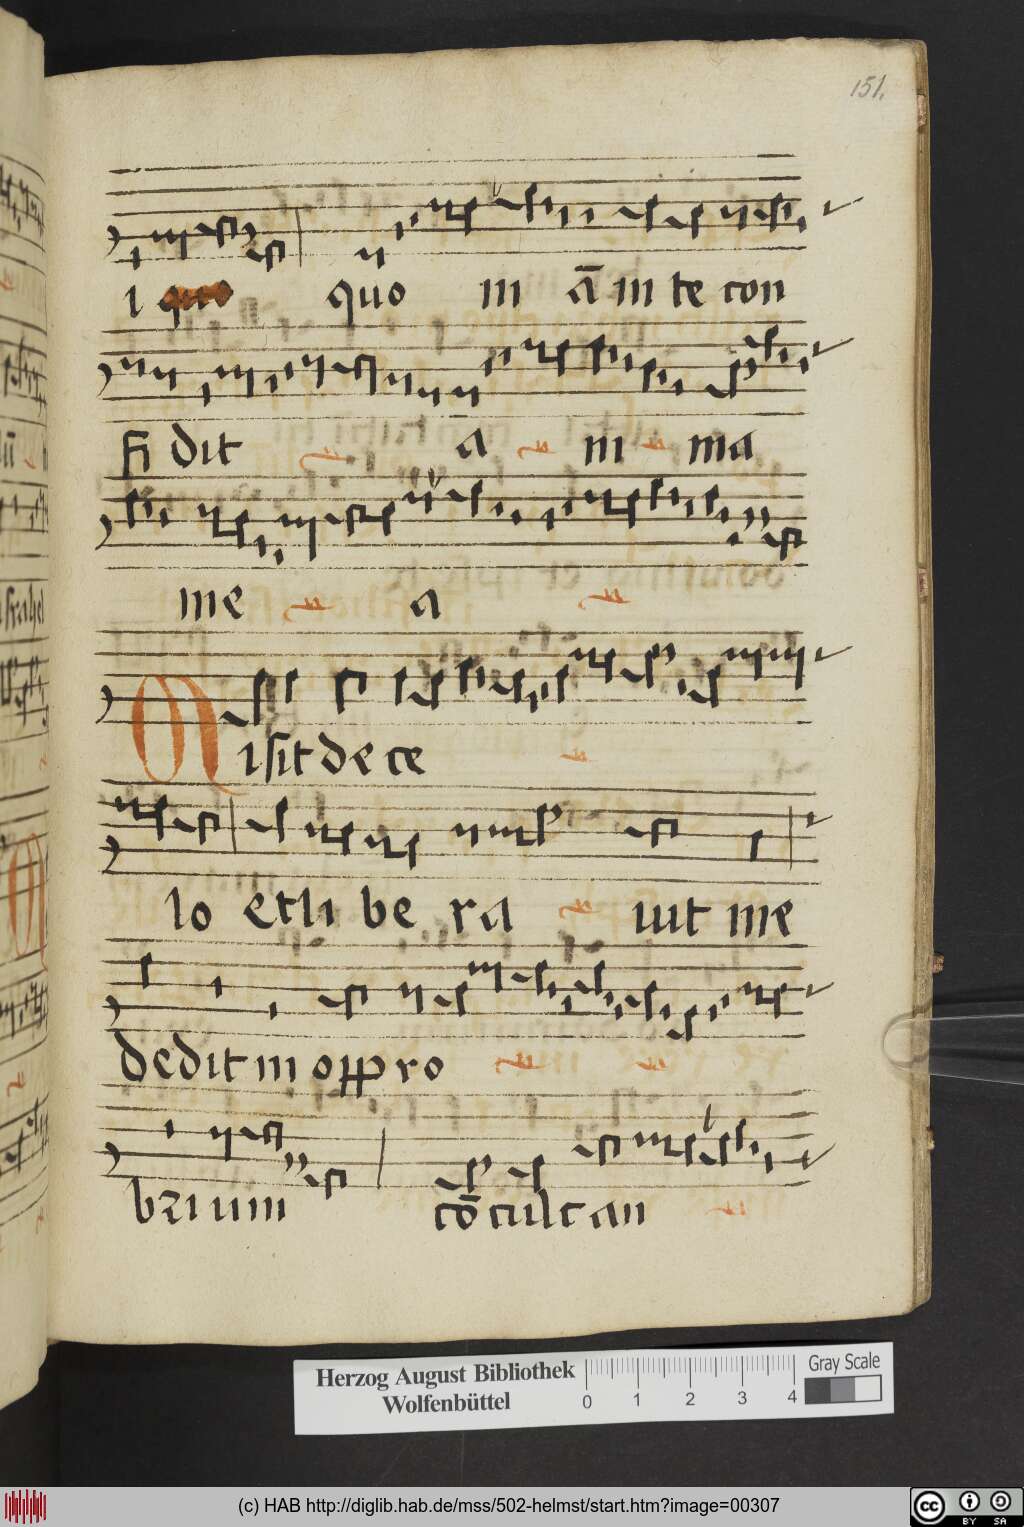 151.
i quo quo in ā in te con
fi dit a ni ma
me a
Misit de ce
lo et li be ra uit me
dedit in opp ro
bri um cō culcan
Herzog August Bibliothek
Wolfenbüttel
0 1 2 3 4
Gray Scale
(c) HAB http://diglib.hab.de/mss/502-helmst/start.htm?image=00307
cc BY SA